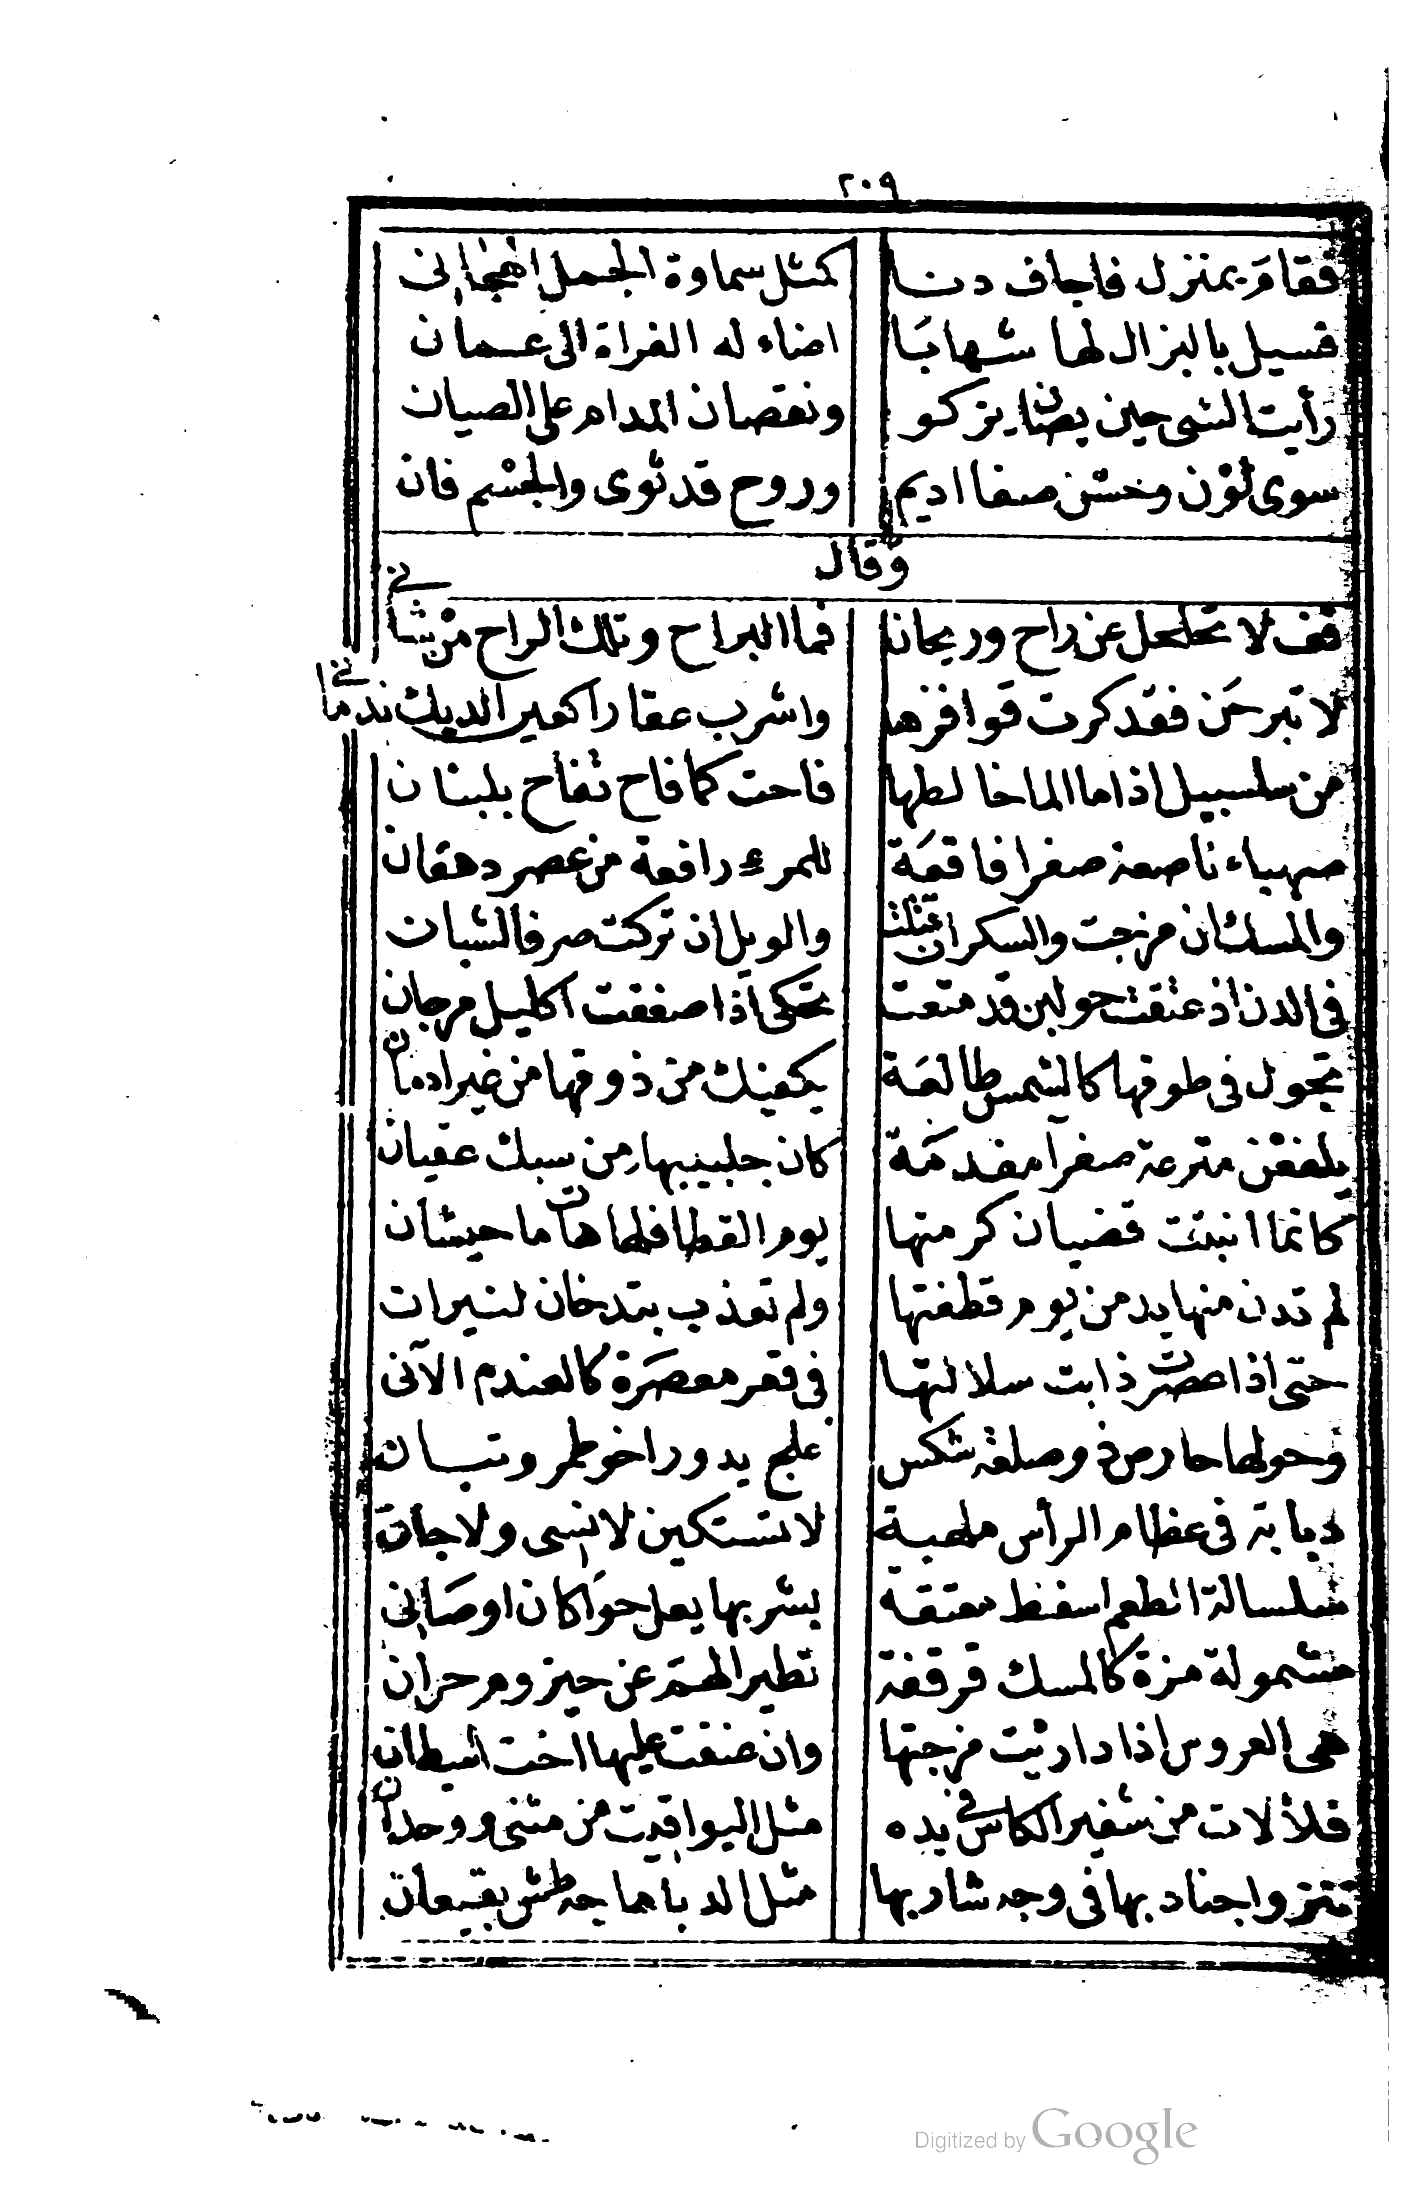 ٢٠٩
فقام بمنزل فاجاف دنا كمثل سماوة الجمل الهجانى
فسيل بالبزال لها شهابا اضاء له الفراة الى عمان
رأيت الشى حين يصان يزكو ونقصان المدام على الصيان
سوى لون وحسن صفا اديم وروح قد ثوى والجسم فان
وقال
قف لا تحلحل عن راح وريحان فما البراح وتلك الراح من شانى
لا تبرحن فقد كرت قوافزها واشرب عقارا كعين الديك ندمانى
من سلسبيل اذا ما الما خالطها فاحت كما فاح تفاح بلبنان
صهباء ناصعة صفرا فاقعة للمرء رافعة من عصر دهقان
والمسك ان مزجت والسكران والويل ان تركت صرفا لشبان
فى الدن اذ عتقت حولين قد متعت تحكى اذا صفقت اكليل مرجان
تجول فى طوقها كالشمس طالعة يكفيك من ذوقها من غير ادمان
مترعة صفرآ مفدمة كان جلبيبها من سبك عقيان
كانما انبتت قضبان كرمتها يوم القطاف لها هات ما حيشان
لم تدن منها يد من يوم قطفتها ولم تعذب بتدخان لنيرات
حتى اذا عصرت ذابت سلالتها فى قعر معصرة كالعندم الآنى
وحولها حارص ذو صلفة شكس علج يدور اخو طمر وتبان
دبابة فى عظام الرأس ملهبة لا تستكين لانسى ولا جان
سلسالة الطعم اسفنط معتقة بشربها يعل حوا كان اوصانى
مشمولة مزة كالمسك قرقفة تطير الهم عن حيزوم حران
هى العروس اذا داريت مزجتها وان عنفت عليها اخت اشيطان
فلألات من شفير الكاس فى يده مثل اليواقيت من مثنى ووحدان
تنزو اجنادبها فى وجه شاربها مثل الدبا هاجه طش بقيعان
Digitized by Google